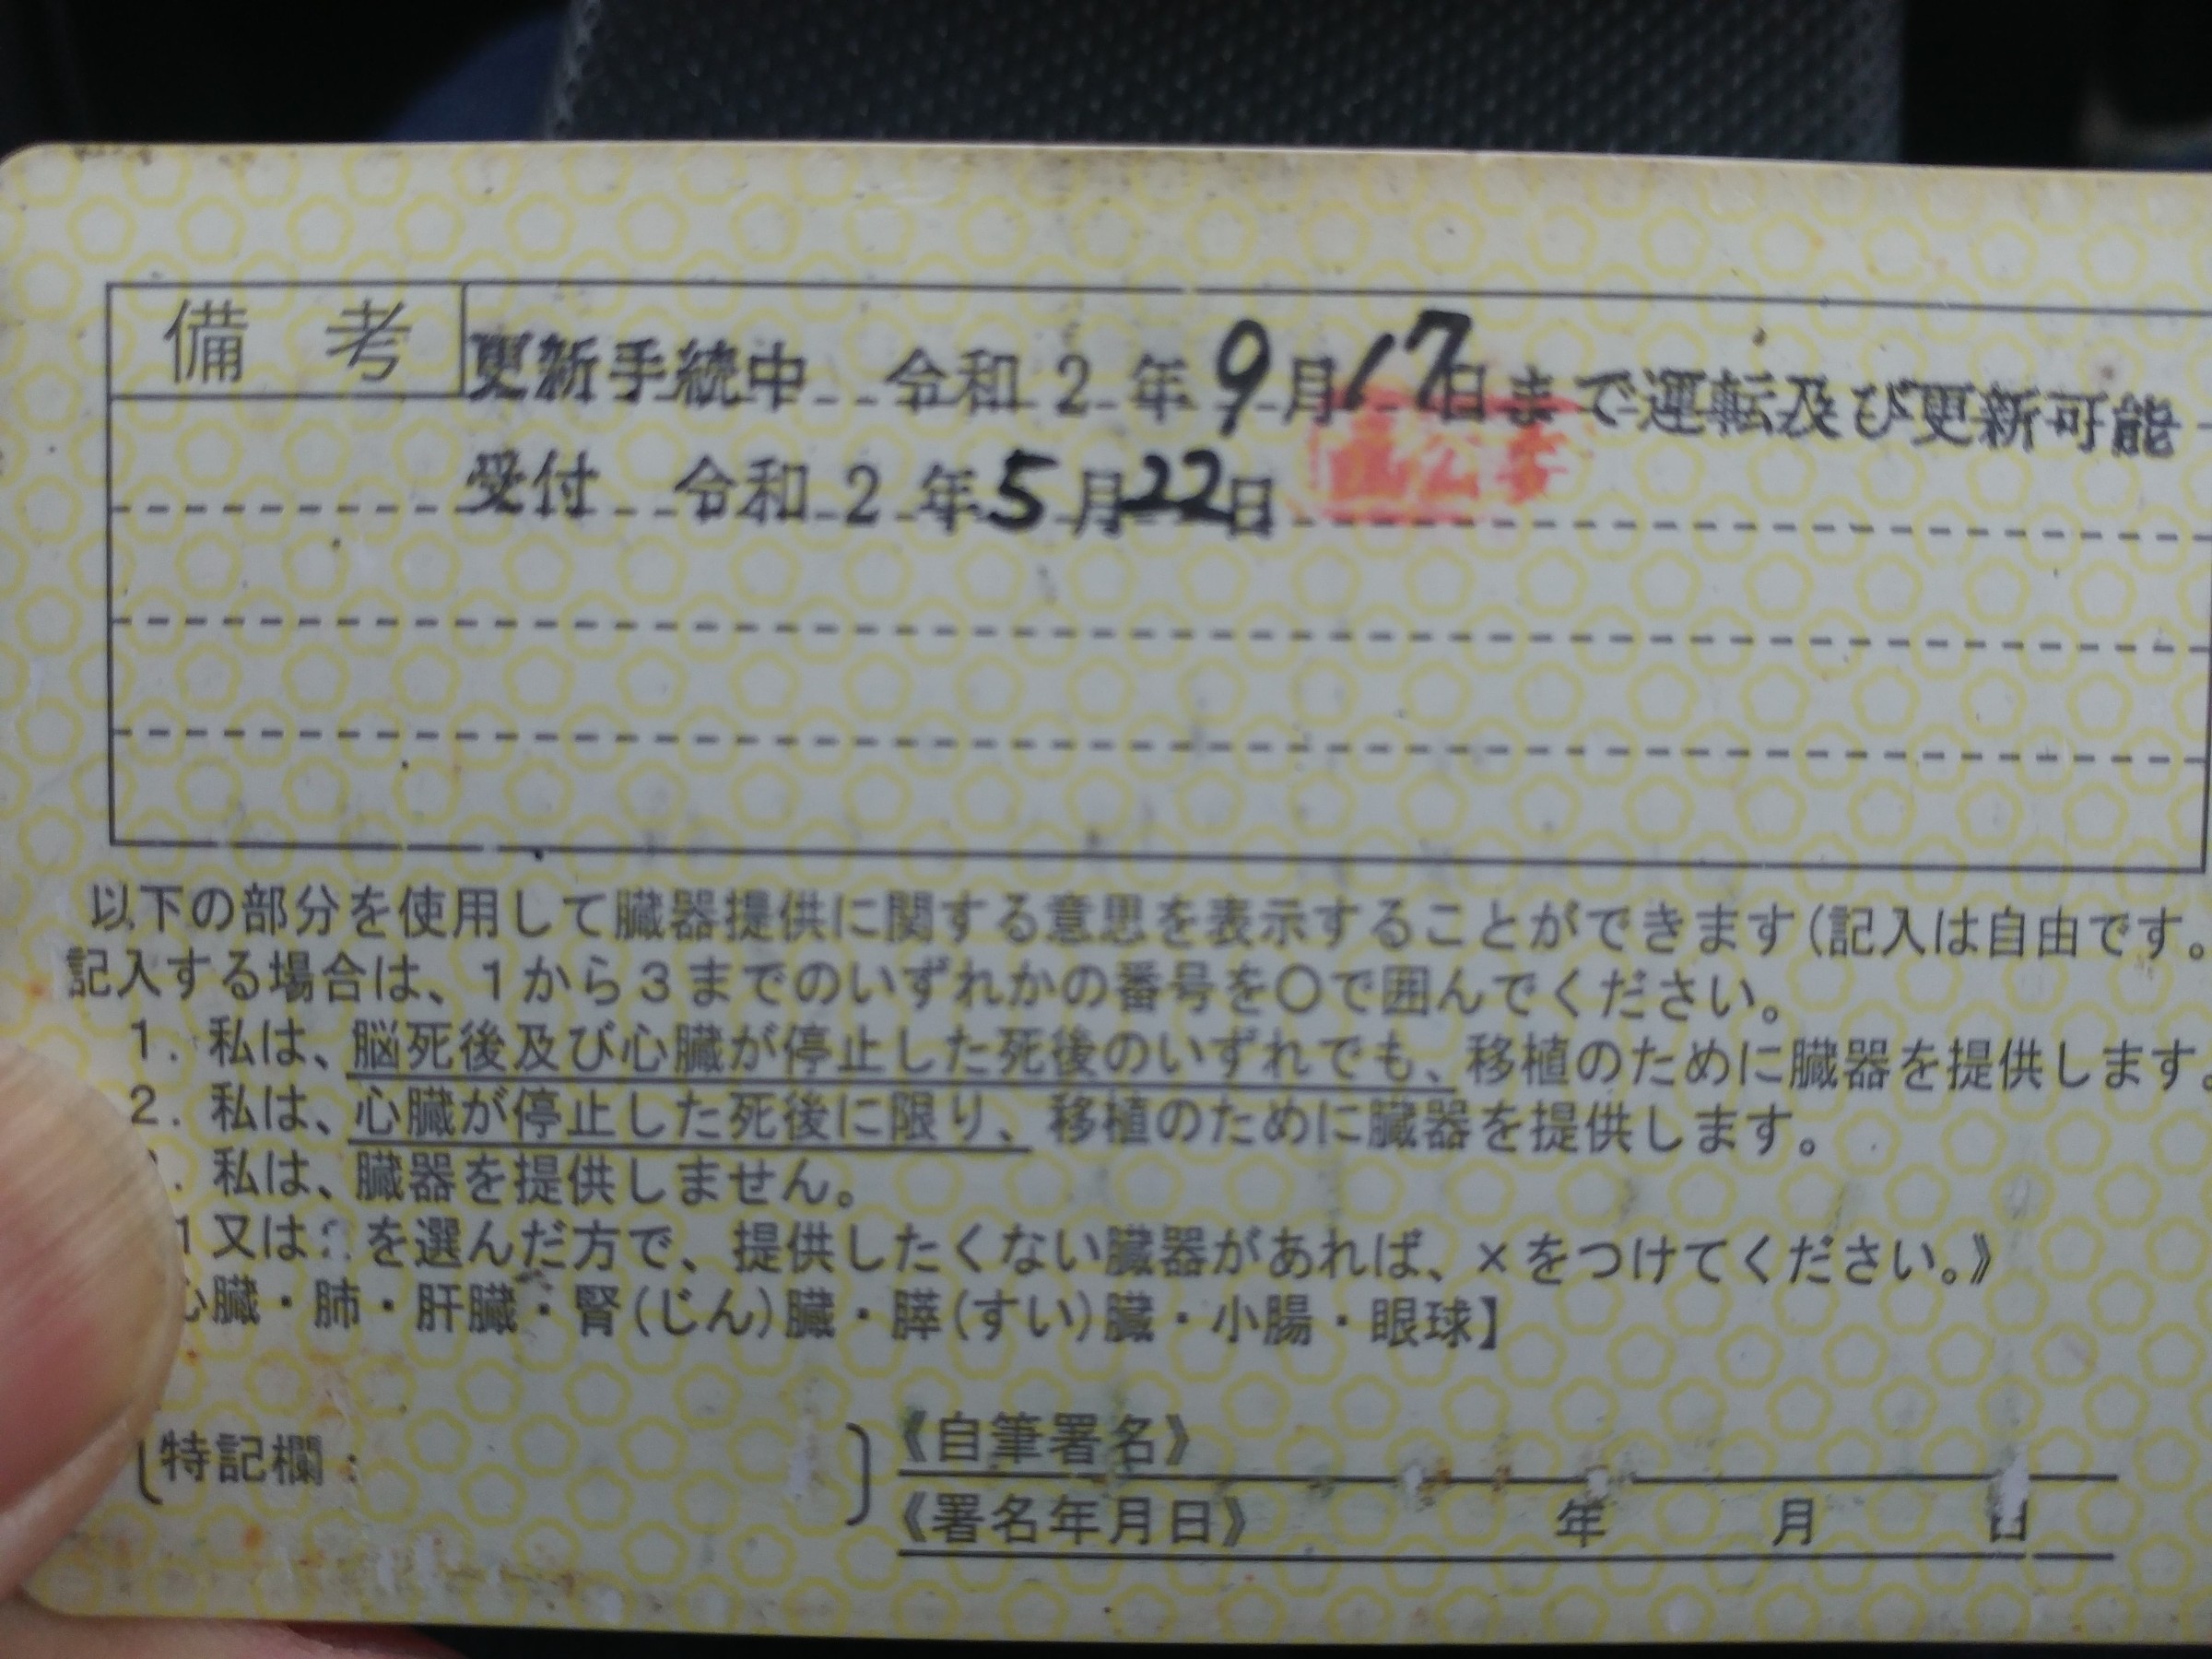 備考
更新手続中 令和2年9月17日まで運転及び更新可能
受付 令和2年5月22日
公安
以下の部分を使用して臓器提供に関する意思を表示することができます(記入は自由です。
記入する場合は、1から3までのいずれかの番号を〇で囲んでください。
1. 私は、脳死後及び心臓が停止した死後のいずれでも、移植のために臓器を提供します。
2. 私は、心臓が停止した死後に限り、移植のために臓器を提供します。
. 私は、臓器を提供しません。
1又は を選んだ方で、提供したくない臓器があれば、×をつけてください。》
心臓・肺・肝臓・腎(じん)臓・膵(すい)臓・小腸・眼球】
〔特記欄: 〕
《自筆署名》
《署名年月日》 年 月 日